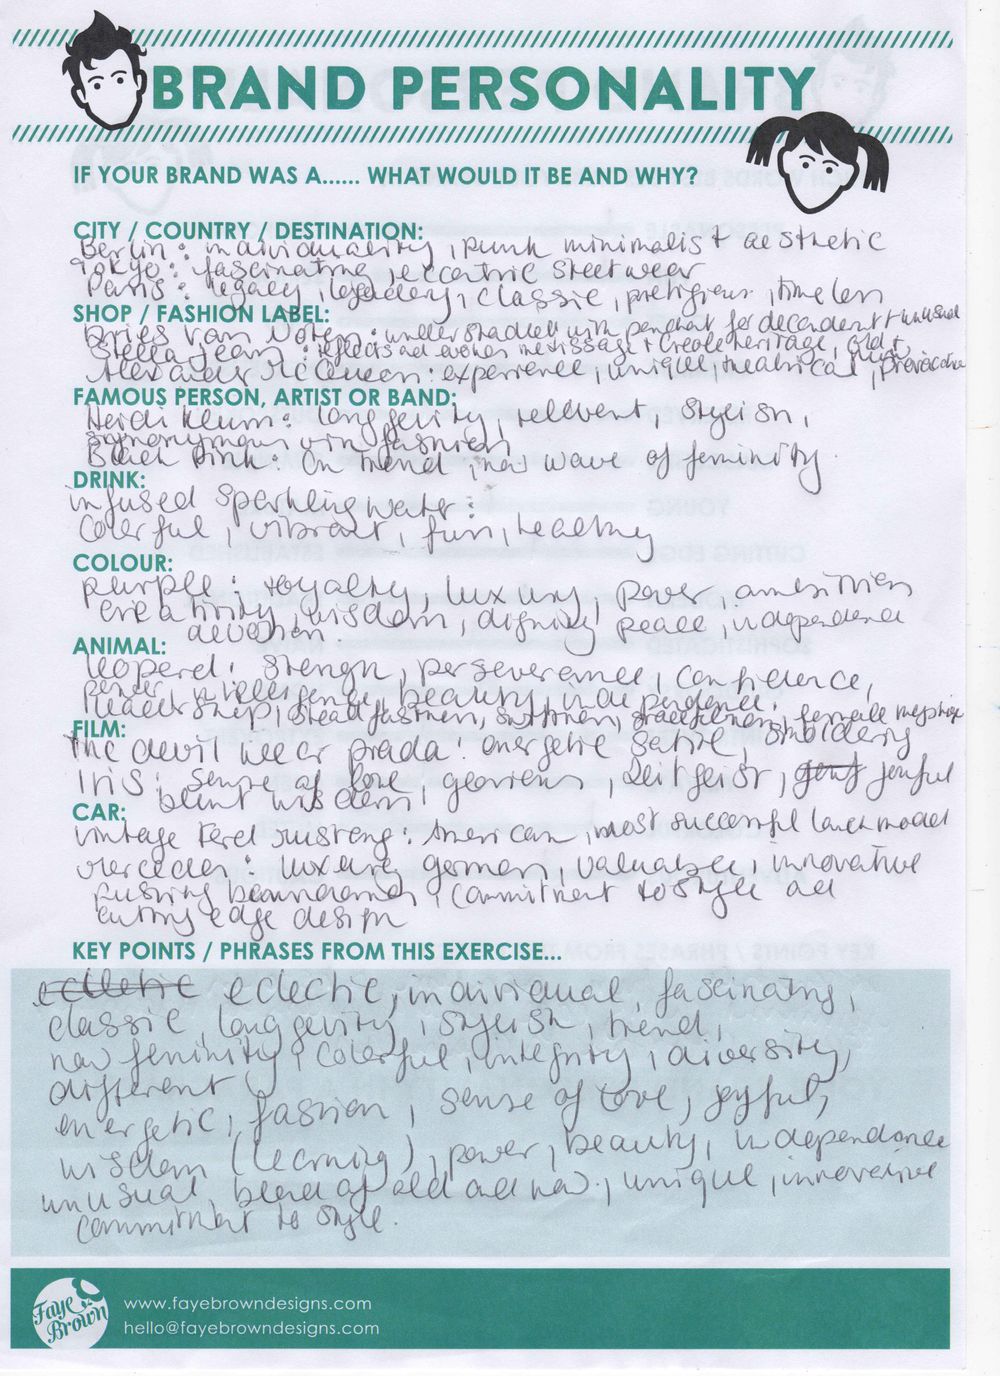 BRAND PERSONALITY
IF YOUR BRAND WAS A...... WHAT WOULD IT BE AND WHY?
CITY / COUNTRY / DESTINATION:
Berlin: individuality, punk minimalist aesthetic
Tokyo: fascinating, eccentric streetwear
Paris: legacy, legendary, classic, timeless
SHOP / FASHION LABEL:
Dries Van Noten: with penchant for decadent + unusual
Stella Jean: reflects and message + create heritage, old +
Alexander McQueen: experience, unique, theatrical, provocative
FAMOUS PERSON, ARTIST OR BAND:
Heidi Klum: longgevity, rellevent, stylish,
fashion
Black Pink: on trend, new wave of femininity
DRINK:
infused sparkling water:
colorful, vibrant, fun, healthy
COLOUR:
purple: royalty, luxury, power, ambition
creativity, wisdom, dignity, peace, independence
devotion.
ANIMAL:
leoperd: strengh, perseverance, confidence,
power, intelligence, beauty, independence.
leadership, steadfastness, gracefulness, female
FILM:
the devil wear prada: energetic satire,
Iris: sense of love, zeitgeist, joyful
blunt wisdom
CAR:
vintage Ford mustang: American, most successful launch model
Mercedes: luxury, german, valuable, innovative
pushing boundaries, commitment to style and
cutting edge design
KEY POINTS / PHRASES FROM THIS EXERCISE...
eclectic, individual, fascinating,
classic, longgevity, stylish, trend,
new femininity, colorful, integrity, diversity,
different
energetic, fashion, sense of love, joyful,
wisdom (learning), power, beauty, independence
unusual, blend of old and new, unique, innovative
commitment to style.
Faye
Brown
www.fayebrowndesigns.com
hello@fayebrowndesigns.com